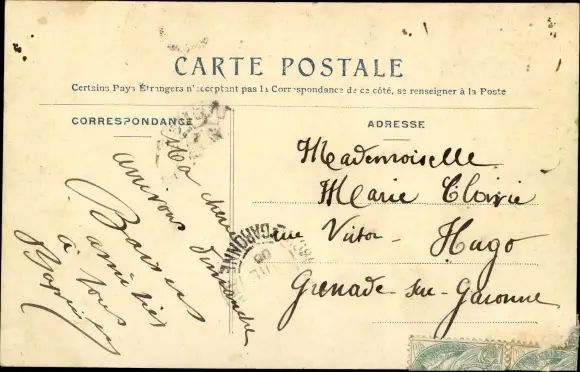 CARTE POSTALE
Certains Pays Etrangers n'acceptant pas la Correspondance de ce côté, se renseigner à la Poste
CORRESPONDANCE
Ma chère
arriverons dimanche
Baisers
amitiés
à tous
ADRESSE
Mademoiselle
Marie
rue Victor-Hugo
Grenade-sur-Garonne
GARONNE